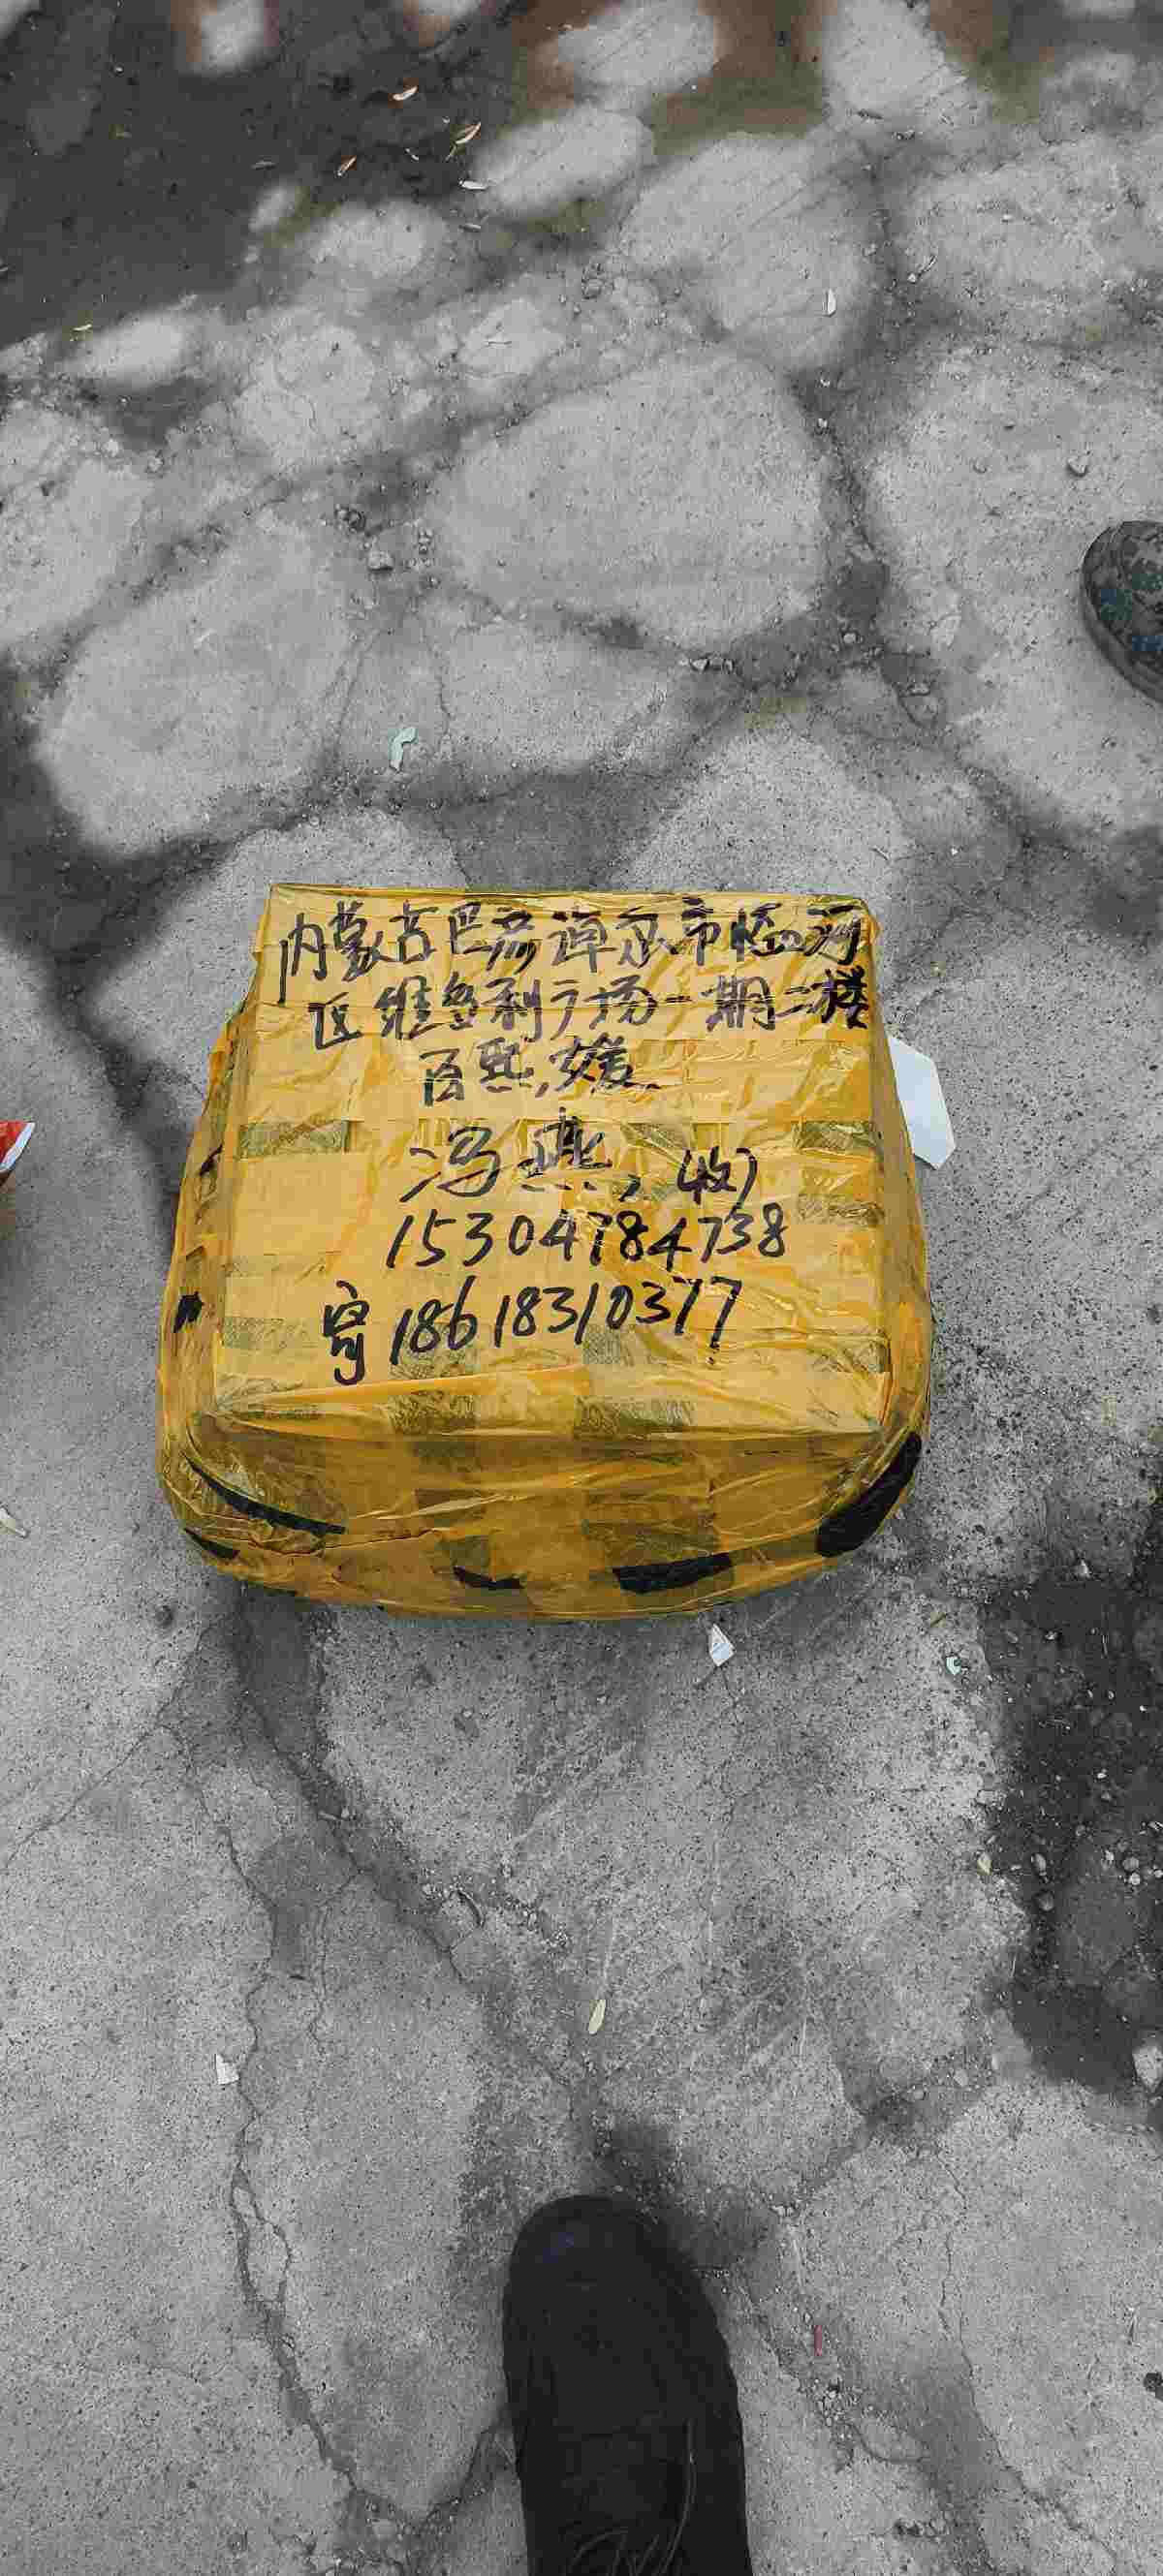 内蒙古巴彦淖尔市临河
区维多利广场一期二楼
百熙,媛
冯燕,(收)
15304784738
寄18618310377